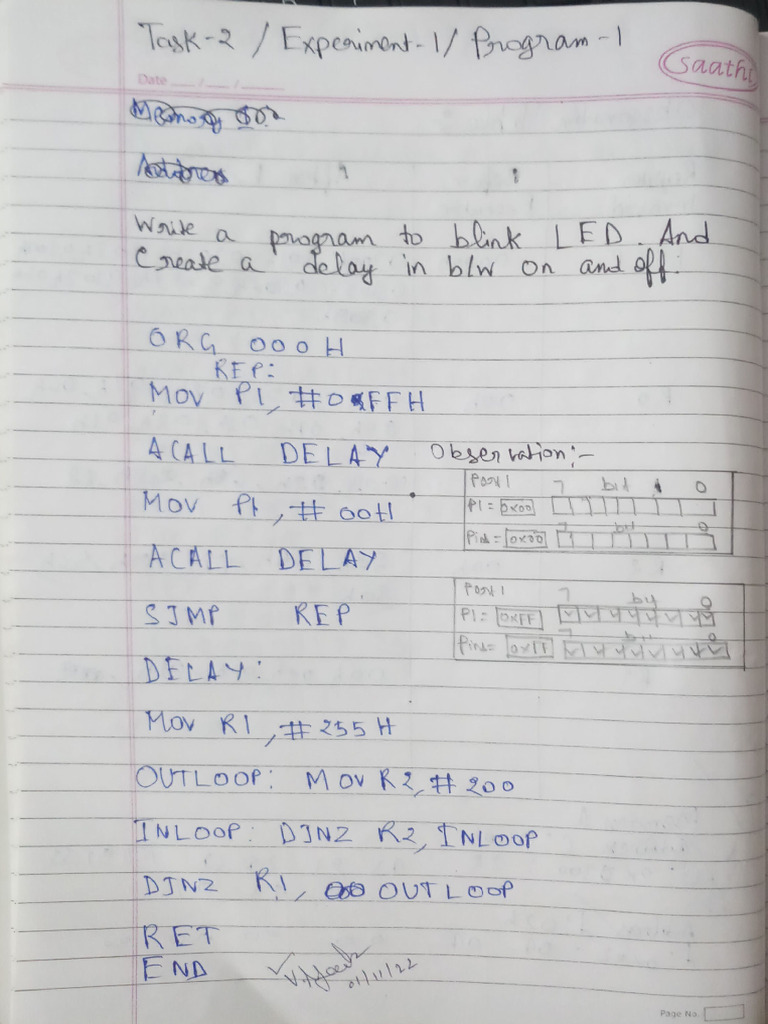 Task-2 / Experiment-1 / Program-1
saathi
Date
Write a program to blink LED. And
Create a delay in b/w on and off.
ORG 000H
REP:
MOV P1, #0FFH
ACALL DELAY
Observation:-
MOV P1, #00H
Port 1 7 bit 0
P1 = 0x00
7 bit 0
Pins = 0x00
ACALL DELAY
SJMP REP
Port 1 7 bit 0
P1 = 0xFF
7 bit 0
Pins = 0xFF
DELAY:
MOV R1, #255H
OUTLOOP: MOV R2, #200
INLOOP: DJNZ R2, INLOOP
DJNZ R1, OUTLOOP
RET
END
01/11/22
Page No.